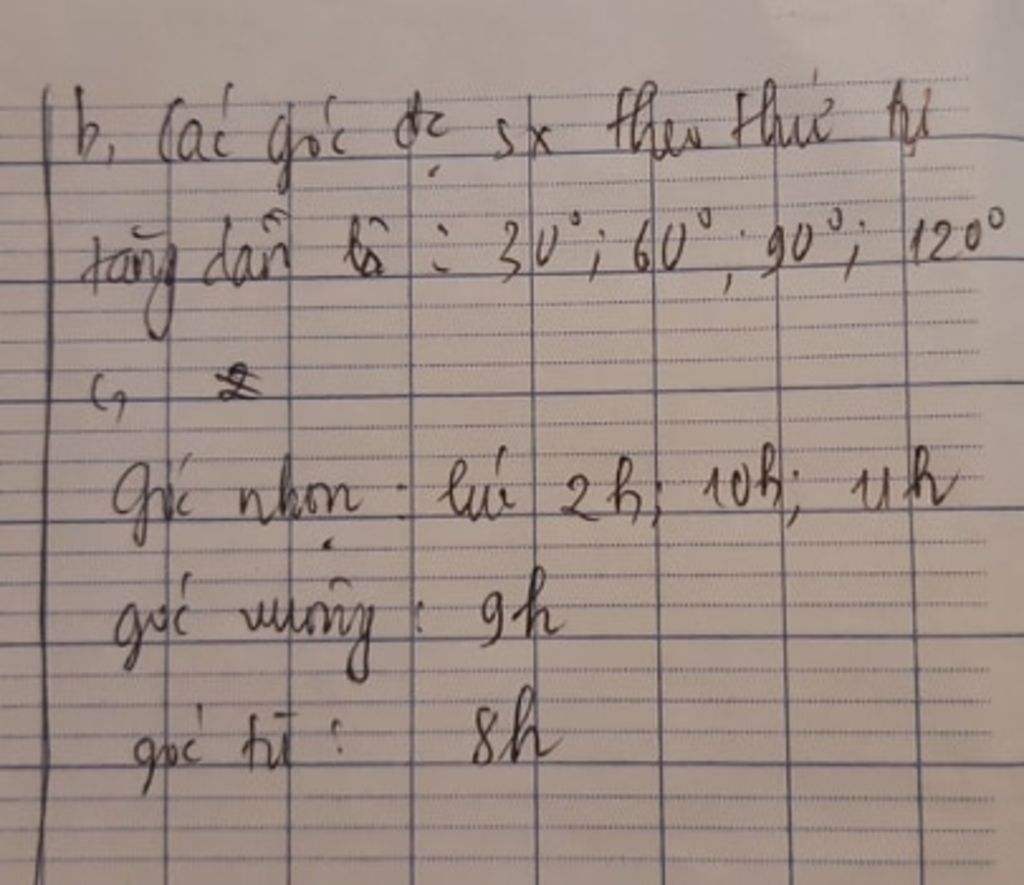 b, Các góc đc sx theo thứ tự
tăng dần là : 30°; 60°; 90°; 120°
c,
Góc nhọn : lúc 2h; 10h; 11h
góc vuông : 9h
góc tù : 8h